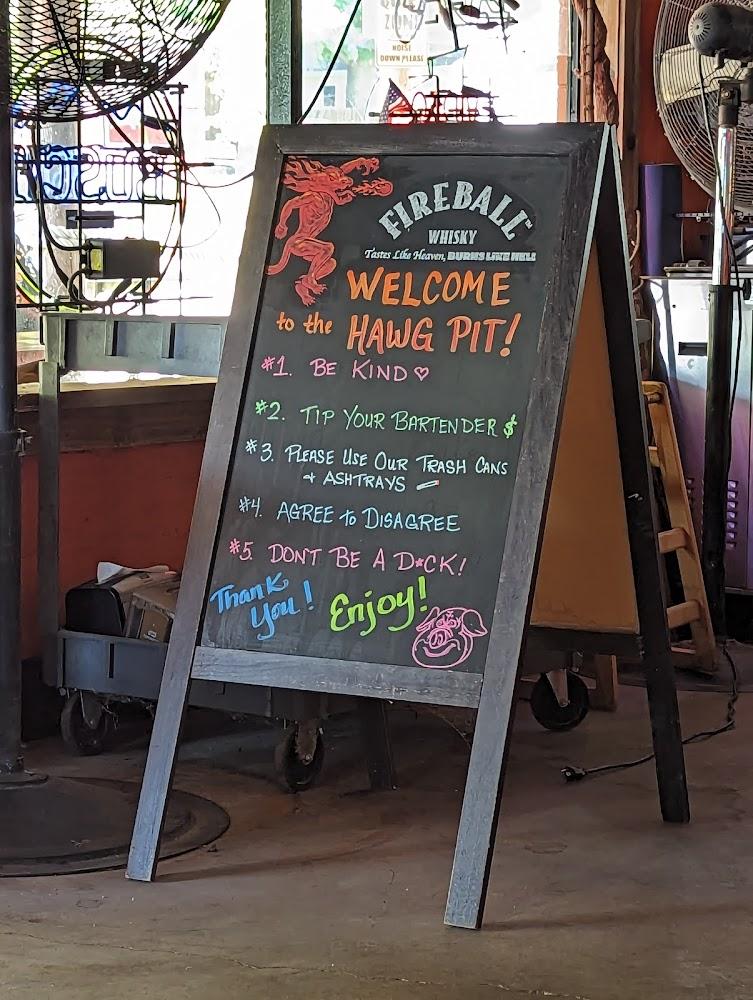 NOISE
DOWN PLEASE
FIREBALL
WHISKY
Tastes Like Heaven, BURNS LIKE HELL
WELCOME
to the HAWG PIT!
#1. BE KIND ♡
#2. TIP YOUR BARTENDER $
#3. PLEASE USE OUR TRASH CANS
+ ASHTRAYS
#4. AGREE to DISAGREE
#5. DONT BE A D*CK!
Thank
You!
Enjoy!